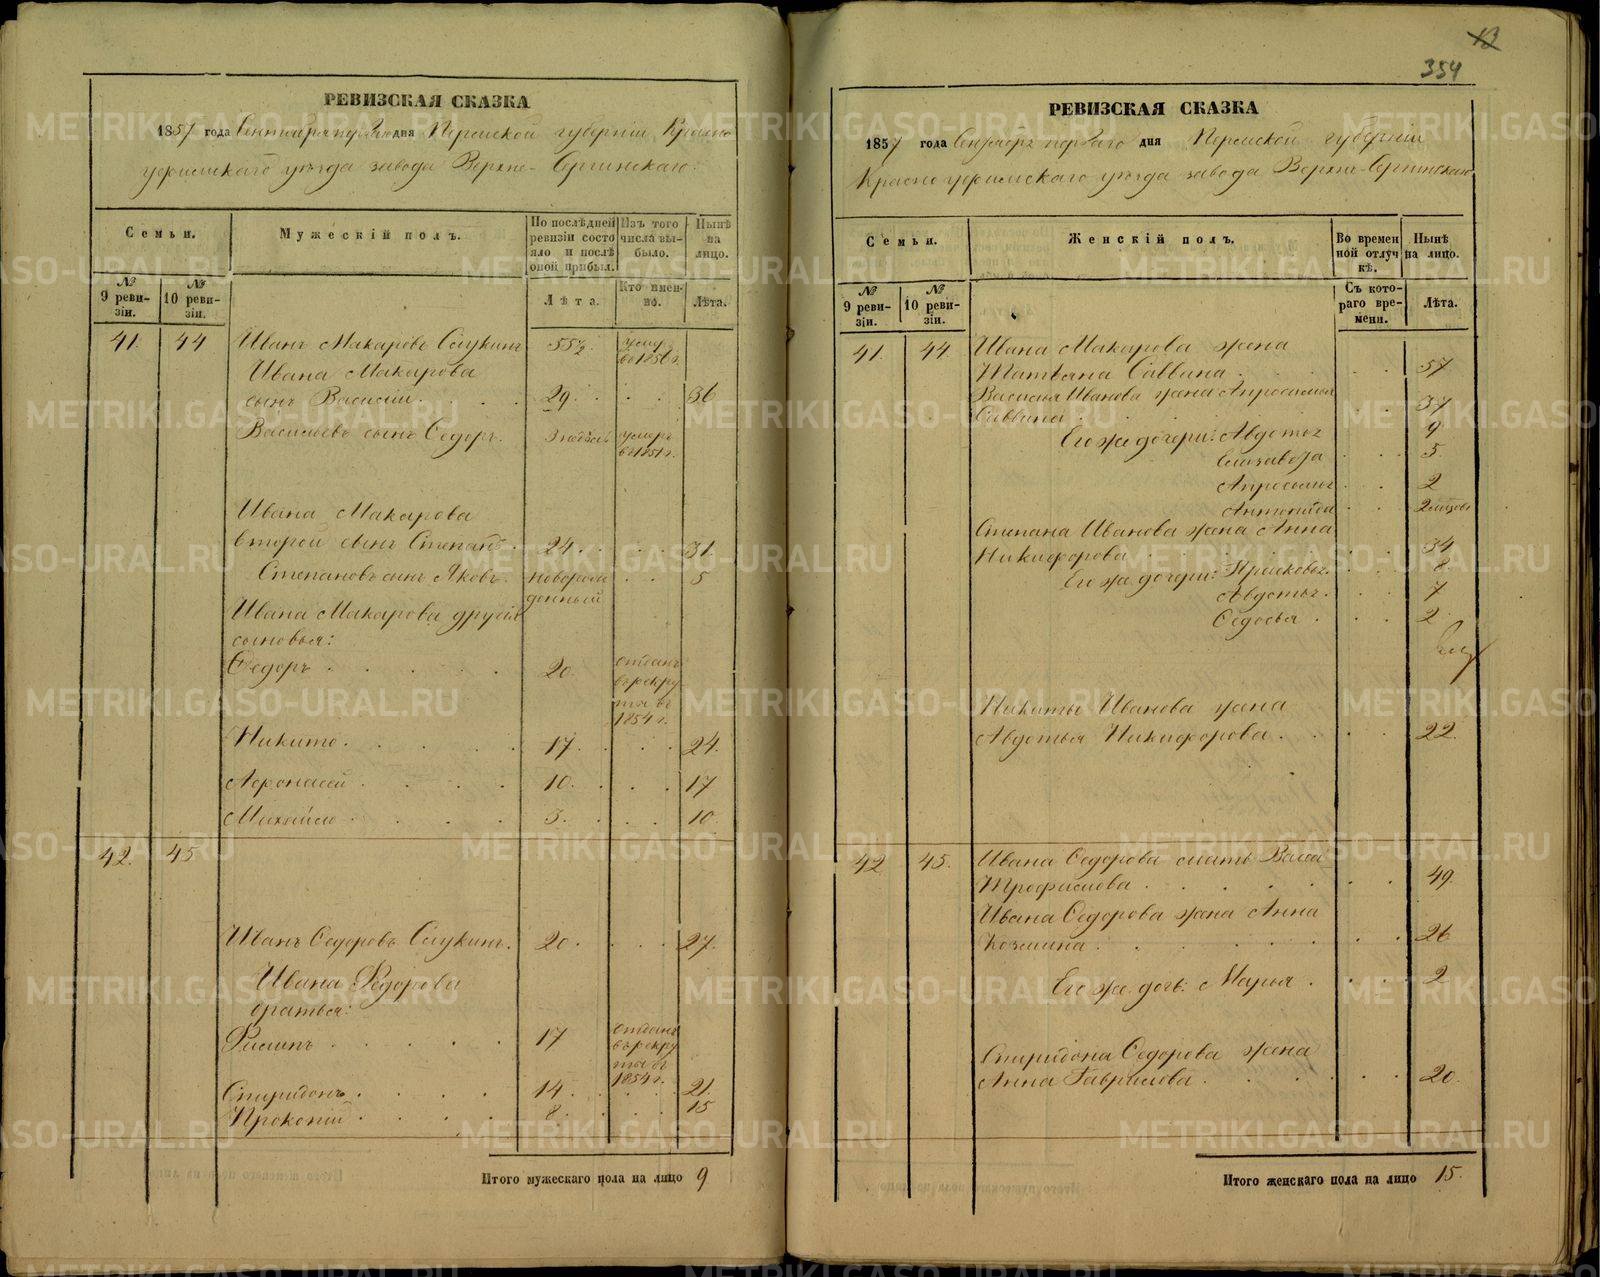 РЕВИЗСКАЯ СКАЗКА
1857 года Сентября перваго дня Пермской губерніи Красно
уфимскаго уѣзда завода Верхне-Сергинскаго:
Семьи.
Мужескій полъ.
По послѣдней ревизіи состояло и послѣ оной прибыл.
Изъ того числа выбыло.
Нынѣ на лицо.
№ 9 ревизіи.
№ 10 ревизіи.
Лѣта.
Кто именно.
Лѣта.
41. 44 Иванъ Макаровъ 55½ умеръ въ 1856 г.
Ивана Макарова
сынъ Василій 29 36
Васильевъ сынъ Ѳедоръ. 3 недѣль умеръ въ 1851 г.
Ивана Макарова
второй сынъ Степанъ 24 31
Степановъ сынъ Яковъ новорожденный 5
Ивана Макарова другія
сыновья:
Ѳедоръ 20 отданъ въ рекруты въ 1854 г.
Никита 17 24
Афонасей 10 17
Михайло 3 10
42. 45
Иванъ Ѳедоровъ 20 27
Ивана Ѳедорова
братья:
Филипъ 17 отданъ въ рекруты въ 1854 г.
Спиридонъ 14 21
Прокопій 8 15
Итого мужескаго пола на лицо 9
13
354
РЕВИЗСКАЯ СКАЗКА
1857 года Сентября перваго дня Пермской губерніи
Красноуфимскаго уѣзда завода Верхне-Сергинскаго
Семьи.
Женскій полъ.
Во временной отлучкѣ.
Нынѣ на лицо.
№ 9 ревизіи.
№ 10 ревизіи.
Съ котораго времени.
Лѣта.
41. 44. Ивана Макарова жена
Татьяна Саввина 57
Василья Иванова жена Апросинья
Саввина 37
Его же дочери: Авдотья 9
Елизавета 5
Апросинья 2
Антонида 2 мѣсяцовъ
Степана Иванова жена Анна
Никифорова 34
Его же дочери: Прасковья 8
Авдотья 7
Ѳедосья 2
Никиты Иванова жена
Авдотья Никифорова 22
42 45. Ивана Ѳедорова мать Васса
Трофимова 49
Ивана Ѳедорова жена Анна
Козмина 26
Его же дочь: Марья 2
Спиридона Ѳедорова жена
Анна Гаврилова 20
Итого женскаго пола на лицо 15.
METRIKI.GASO-URAL.RU